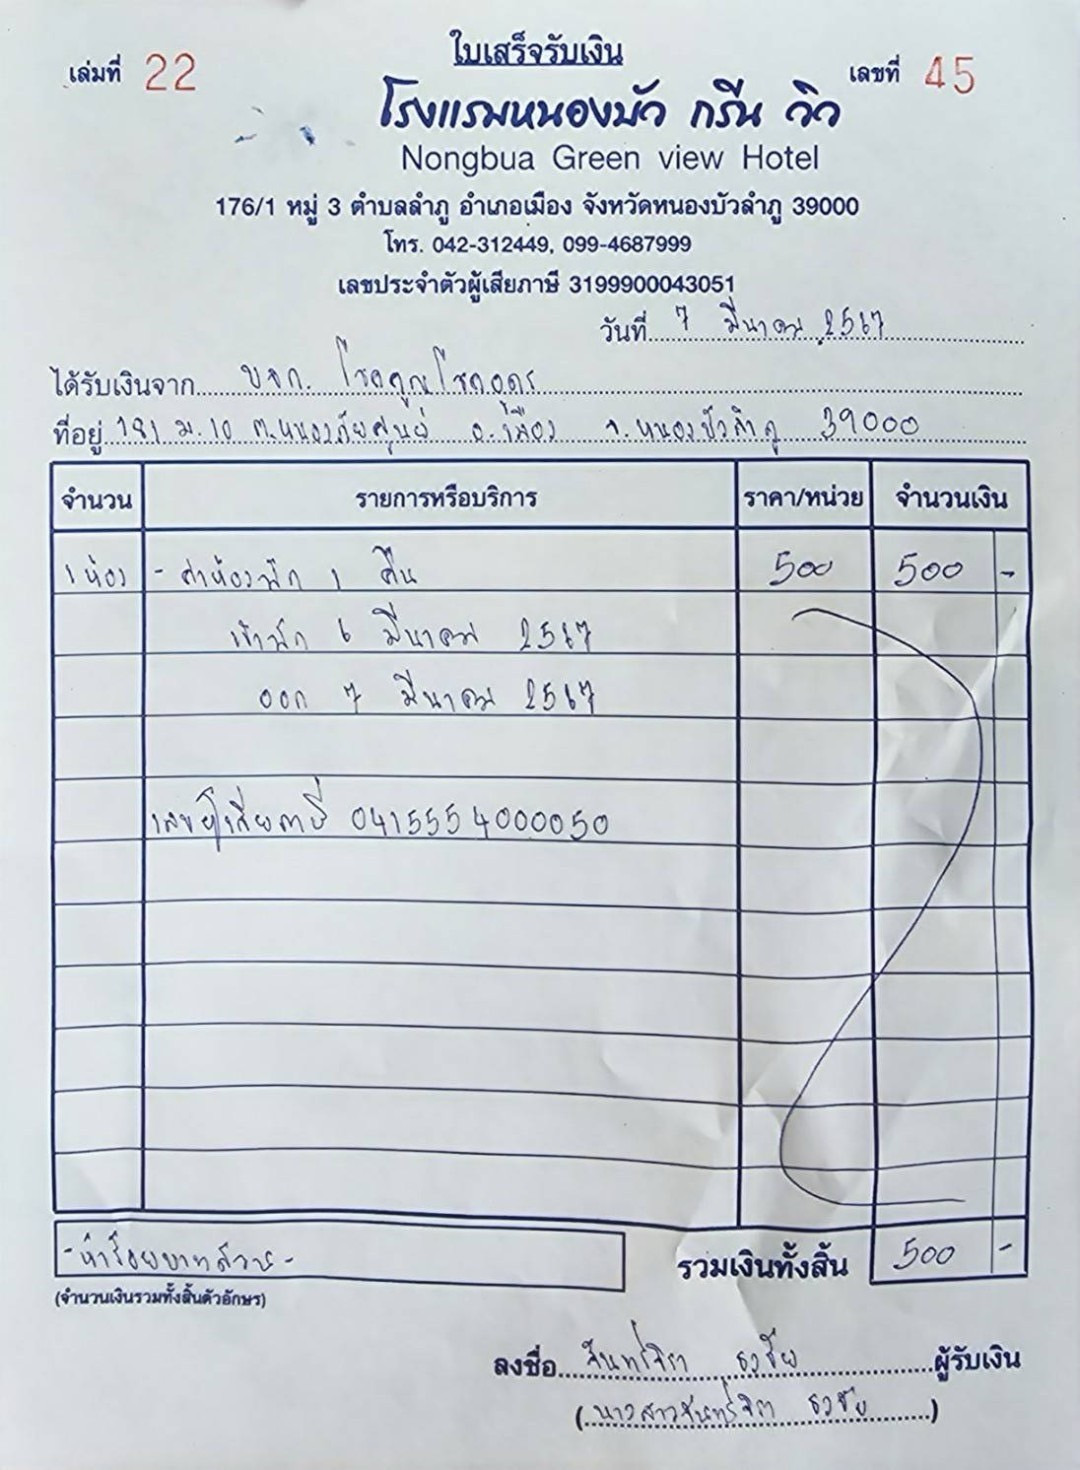 ใบเสร็จรับเงิน
เล่มที่ 22 เลขที่ 45
โรงแรมหนองบัว กรีน วิว
Nongbua Green view Hotel
176/1 หมู่ 3 ตำบลลำภู อำเภอเมือง จังหวัดหนองบัวลำภู 39000
โทร. 042-312449, 099-4687999
เลขประจำตัวผู้เสียภาษี 3199900043051
วันที่ 7 มีนาคม 2567
ได้รับเงินจาก บจก. โชคคูณโชคอุดร
ที่อยู่ 181 ม.10 ต.หนองภัยศูนย์ อ.เมือง จ.หนองบัวลำภู 39000
จำนวน รายการหรือบริการ ราคา/หน่วย จำนวนเงิน
1 ห้อง - ค่าห้องพัก 1 คืน 500 500 -
เข้าพัก 6 มีนาคม 2567
ออก 7 มีนาคม 2567
เลขผู้เสียภาษี 0415554000050
- ห้าร้อยบาทถ้วน - รวมเงินทั้งสิ้น 500 -
(จำนวนเงินรวมทั้งสิ้นตัวอักษร)
ลงชื่อ จันทร์จิรา ธงชัย ผู้รับเงิน
(นางสาวจันทร์จิรา ธงชัย)